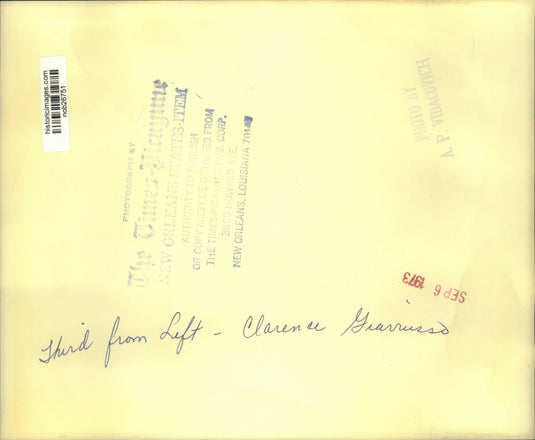 historicimages.com
nob26751
PHOTOGRAPH BY
The Times-Picayune
NEW ORLEANS STATES-ITEM
AUTHORITY TO PUBLISH
OR COPY MUST BE OBTAINED FROM
THE TIMES-PICAYUNE PUB. CORP.
3800 HOWARD AVE.
NEW ORLEANS, LOUISIANA 70140
PHOTO BY
A. P. VIDACOVICH
SEP 6 1973
Third from Left - Clarence Giarrusso